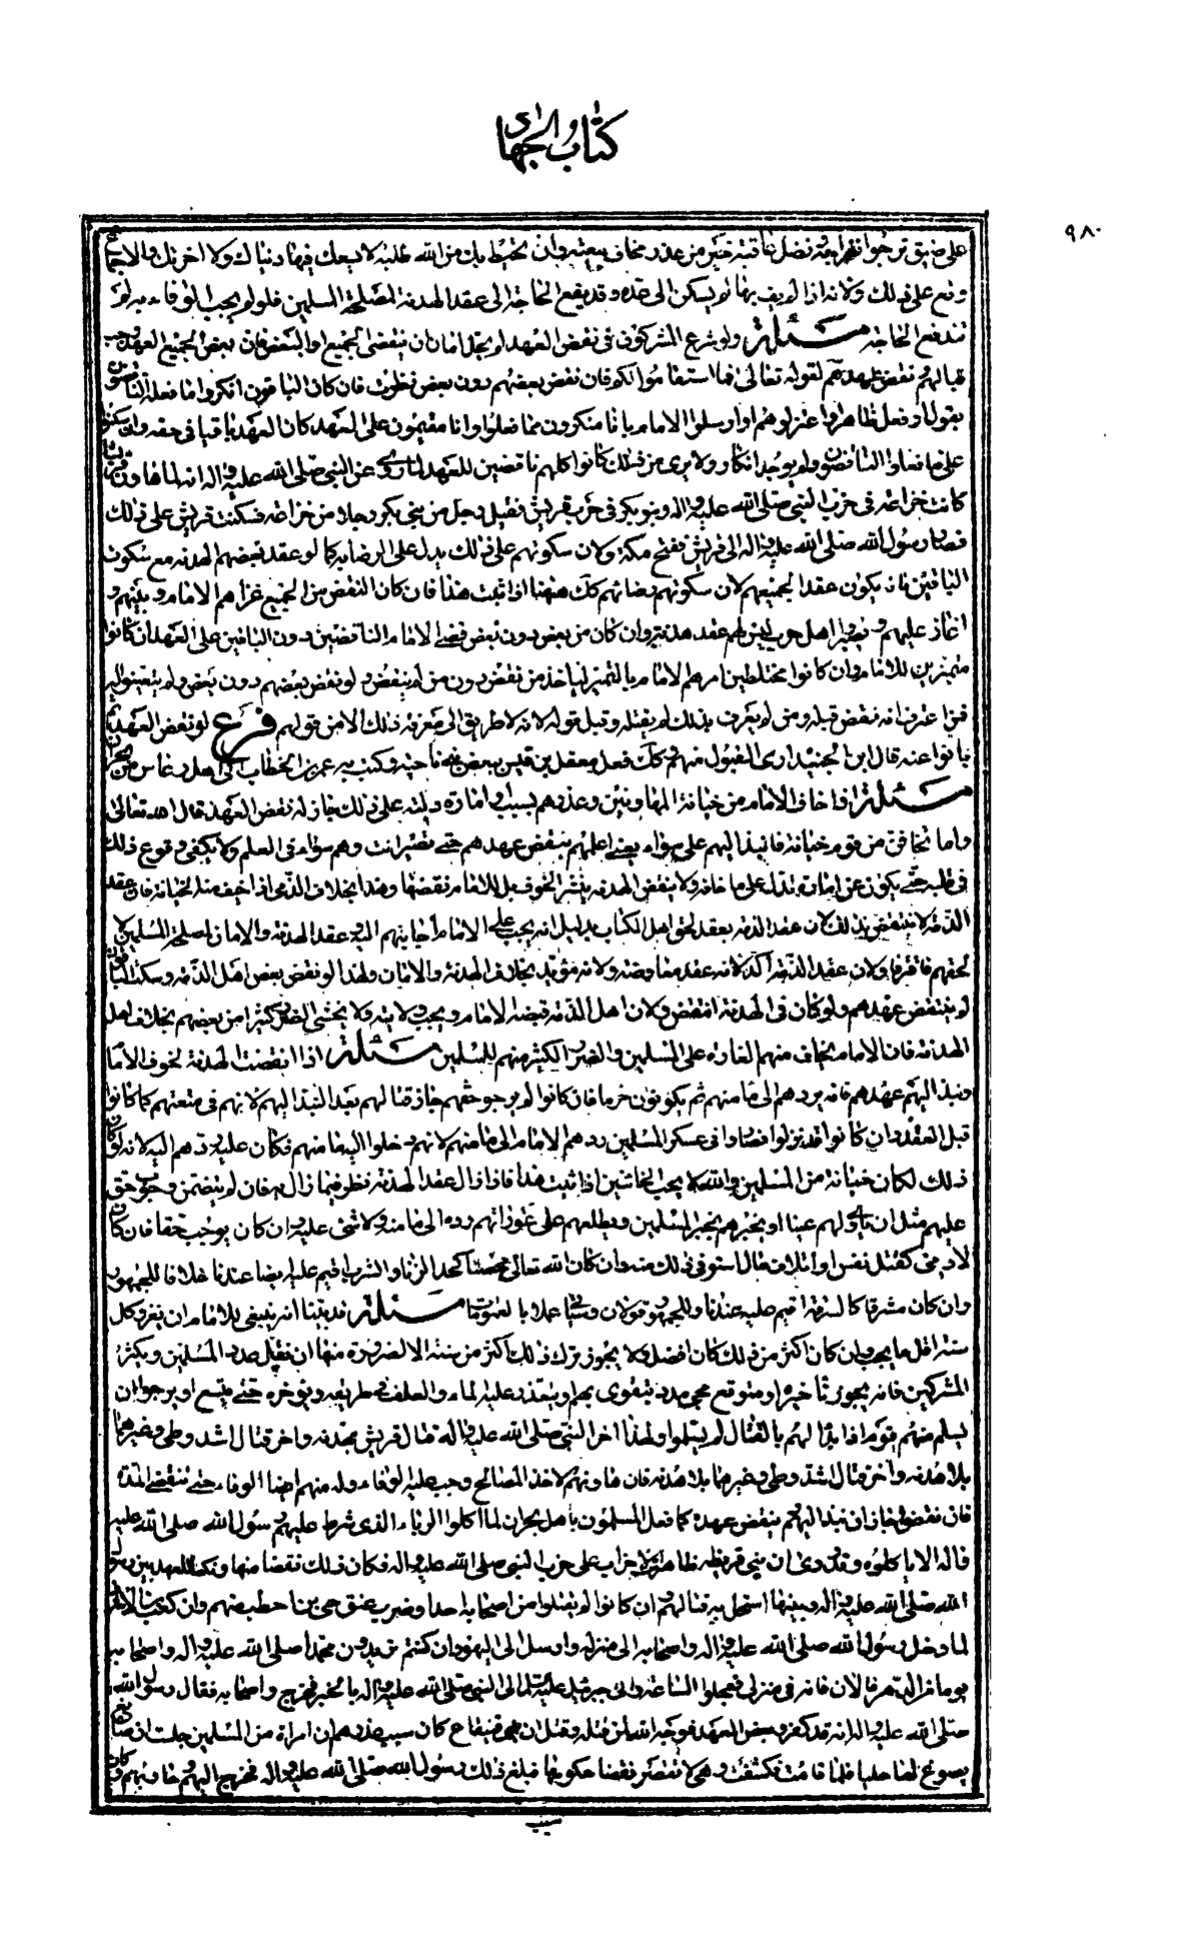 كتاب الجهاد
٩٨٠
على ضيق ترجو انفراجه وفضل عاقبته خير من غدر تخاف تبعته وان تحيط بك من الله طلبة لا يسعك فيها دنياك ولا اخرتك والاجماع
وقع على ذلك ولانه اذا لم يف بها لم يسكن الى عقده وقد يقع الحاجة الى عقد الهدنة لمصلحة المسلمين فلو لم يجب الوفاء به لم
تندفع الحاجة مسئلة ولو شرع المشركون فى نقض العهد لم يخل اما ان ينقض الجميع او البعض فان نقض الجميع العهد وجب
قتالهم ونقض عهدهم لقوله تعالى فما استقاموا لكم فان نقض بعضهم دون بعض نظرت فان كان الباقون انكروا ما فعله الناقضون
بقول او فعل ظاهر او اعتزلوهم او ارسلوا الى الامام بانا منكرون مما فعلوا وانا مقيمون على العهد كان العهد باقيا فى حقه وان سكتوا
على ما فعله الناقضون ولم يوجد انكار ولا تبرى من ذلك كانوا كلهم ناقضين للعهد لما روى عن النبى صلى الله عليه واله انه لما هادن قريشا
كانت خزاعة فى حزب النبى صلى الله عليه واله وبنو بكر فى حزب قريش فقتل رجل من بنى بكر رجلا من خزاعة فسكتت قريش على ذلك
فصار رسول الله صلى الله عليه واله الى قريش ففتح مكة ولان سكوتهم على ذلك يدل على الرضا به كما لو عقد بعضهم الهدنة مع سكون
الباقين فانه يكون عقدا لجميعهم لان سكوتهم رضا منهم كك ههنا اذا ثبت هذا فان كان النقض من الجميع غزاهم الامام وبيتهم و
اغار عليهم ويصيروا اهل حرب ليس لهم عقد هدنة وان كان من بعض دون بعض غزى الامام الناقضين دون الباقين على العهد ان كانوا
متميزين للامام وان كانوا مختلطين امرهم الامام بالتميز لياخذ من نقض دون من لم ينقض ولو نقض بعضهم دون بعض ولم يتعينوا له
فمن اعترف بانه نقض قتله ومن لم يعترف بذلك لم يقتله وقبل قوله لانه لا طريق الى معرفة ذلك الا من قولهم فرع لو نقض العهد ثم
تابوا عنه قال ابن الجنيد ارى القبول منهم وكك فعل معقل بن قيس ببعض بنى ناجية وكتب به عمر بن الخطاب الى
مسئلة اذا خاف الامام من خيانة المهادنين وغدرهم بسبب او امارة دلته على ذلك جاز له نقض العهد قال الله تعالى
واما تخافن من قوم خيانة فانبذ اليهم على سواء يعنى اعلمهم بنقض عهدهم حتى تصير انت وهم سواء فى العلم ولا يكفى وقوع ذلك
فى قلبه حتى يكون عن امارة تدل على ما خافه ولا ينتقض الهدنة بنفس الخوف بل للامام نقضها وهذا بخلاف الذمى اذا خيف منه الخيانة فان عقد
الذمة لا ينتقض بذلك لان عقد الذمة يعقد لحق اهل الكتاب بدليل انه يجب على الامام اجابتهم اليه وعقد الهدنة والامان لمصلحة المسلمين لا
لحقهم فافترقا ولان عقد الذمة آكد لانه عقد معاوضة ولانه مؤبد بخلاف الهدنة والامان ولهذا لو نقض بعض اهل الذمة وسكت الباقون
لم ينتقض عهدهم ولو كان فى الهدنة انتقض ولان اهل الذمة قبضة الامام وتحت ولايته ولا يخشى الضرر كثيرا من بعضهم بخلاف اهل
الهدنة فان الامام يخاف منهم الغارة على المسلمين والضرر الكثير منهم للمسلمين مسئلة اذا انتقضت الهدنة لخوف الامام
ونبذ اليهم عهدهم فانه يردهم الى مامنهم ثم يكونون حربا فان كانوا لم يبرحوا حصنهم جاز قتالهم بعد النبذ اليهم لانهم فى منعتهم كما كانوا
قبل العقد وان كانوا قد نزلوا فصاروا فى عسكر المسلمين ردهم الامام الى مامنهم لانهم دخلوا اليه من مامنهم فكان عليه ردهم اليه لانه لو كان
ذلك لكان خيانة من المسلمين والله لا يحب الخائنين اذا ثبت هذا فانه اذا زال عقد الهدنة نظر فيما زال به فان لم يتضمن وجوب حق
عليهم مثل ان ياوى لهم عينا او يخبرهم بخبر المسلمين ويطلعهم على عوراتهم رده الى مامنه ولا شئ عليه وان كان يوجب حقا فان كان
لادمى كقتل نفس او اتلاف مال استوفى ذلك منه وان كان لله تعالى محضا كحد الزنا والشرب اقيم عليه ايضا عندنا خلافا للجمهور
وان كان مشتركا كالسرقة اقيم عليه عندنا وللجمهور قولان مسئلة قد بينا انه ينبغى للامام ان يغزو كل
سنة اقل ما يجب وان كان اكثر من ذلك كان افضل ولا يجوز ترك ذلك اكثر من سنة الا لضرورة منها ان يقل عدد المسلمين ويكثر
المشركين فانه يجوز تاخيره او متوقع مجئ مدد يتقوى بهم او يتعذر عليه الماء والعلف فى طريقه ويؤخره حتى يتسع او يرجو ان
يسلم منهم قوم اذا بدا لهم بالقتال لم يسلموا ولهذا اخر النبى صلى الله عليه واله قتال قريش بهدنة واخر قتال اسد وطى وغيرهما
بلا هدنة واخر قتال اسد وطى وغيرهما بلا هدنة فان هادنهم لاخذ المصالح وجب عليه الوفاء وله منهم ايضا الوفاء حتى تنقضى المدة
فان نقضوا جاز ان ينبذ اليهم بنقض عهده كما فعل المسلمون باهل نجران لما اكلوا الرباء الذى شرط عليهم رسول الله صلى الله عليه
واله الا ياكلوه وقد روى ان بنى قريظة ظاهروا الاحزاب على حرب النبى صلى الله عليه واله فكان ذلك نقضا منها ونكثا للعهد بين رسول
الله صلى الله عليه واله وبينها استحل به قتالهم وان كانوا لم يقتلوا من اصحابه احدا وضرب عنق حى بن اخطب منهم وان كعب بن الاشرف
لما دخل رسول الله صلى الله عليه واله واصحابه الى منزله وارسل الى اليهود ان كنتم تريدون محمدا صلى الله عليه واله واصحابه
يوما من الدهر فالان فانه فى منزلى فعجلوا الساعة واتى جبرئيل عليه السلام الى النبى صلى الله عليه واله بالخبر فخرج واصحابه فقال رسول الله
صلى الله عليه واله انه قد كفر ونقض العهد فوجه اليه من قتله وقيل ان بنى قينقاع كان سبب غدرهم ان امراة من المسلمين جلست الى صائغ
يصوغ لها حليا فلما قامت تكشفت وهى لا تشعر فبلغ ذلك رسول الله صلى الله عليه واله فخرج اليهم وحاربهم وكان
سبب